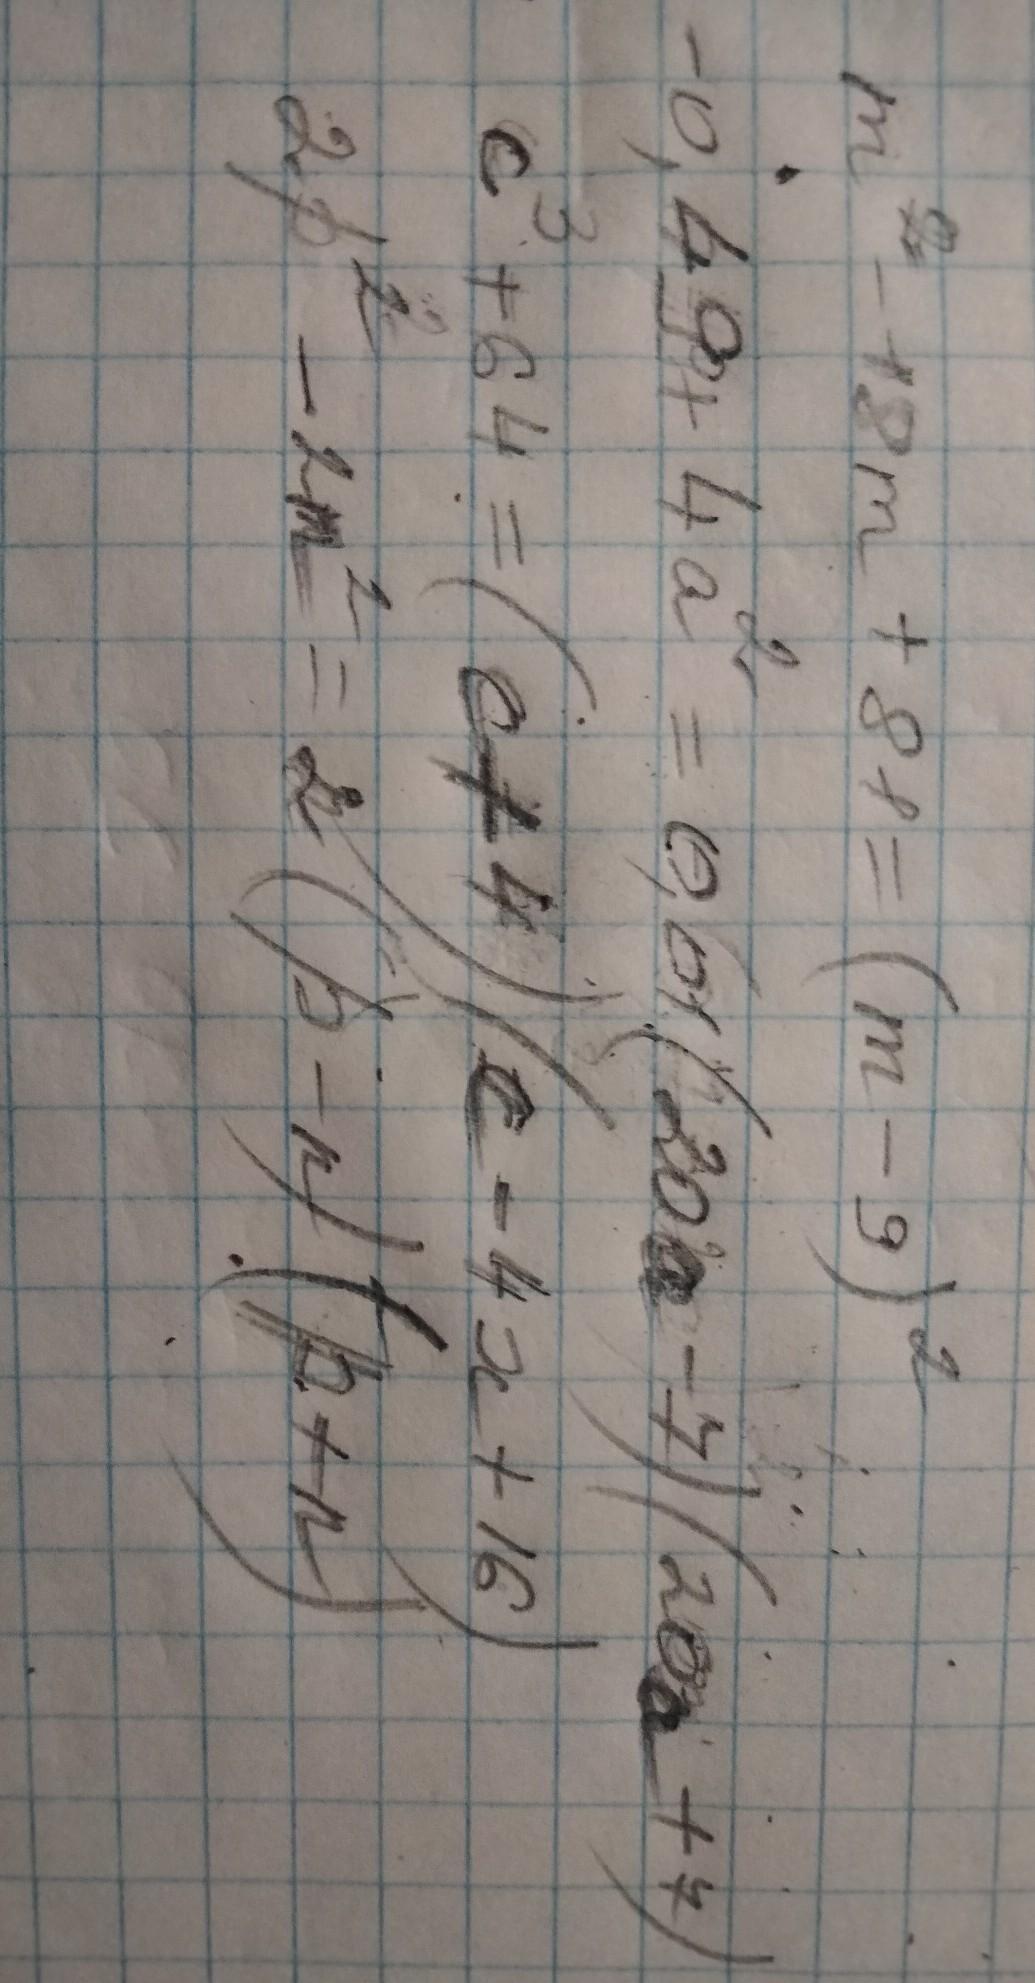 m² - 18m + 81 = (m - 9)²
-0,49 + 4a² = 0,01(20a - 7)(20a + 7)
c³ + 64 = (c + 4)(c - 4x + 16)
2p² - 2m² = 2(p - n)(p + n)